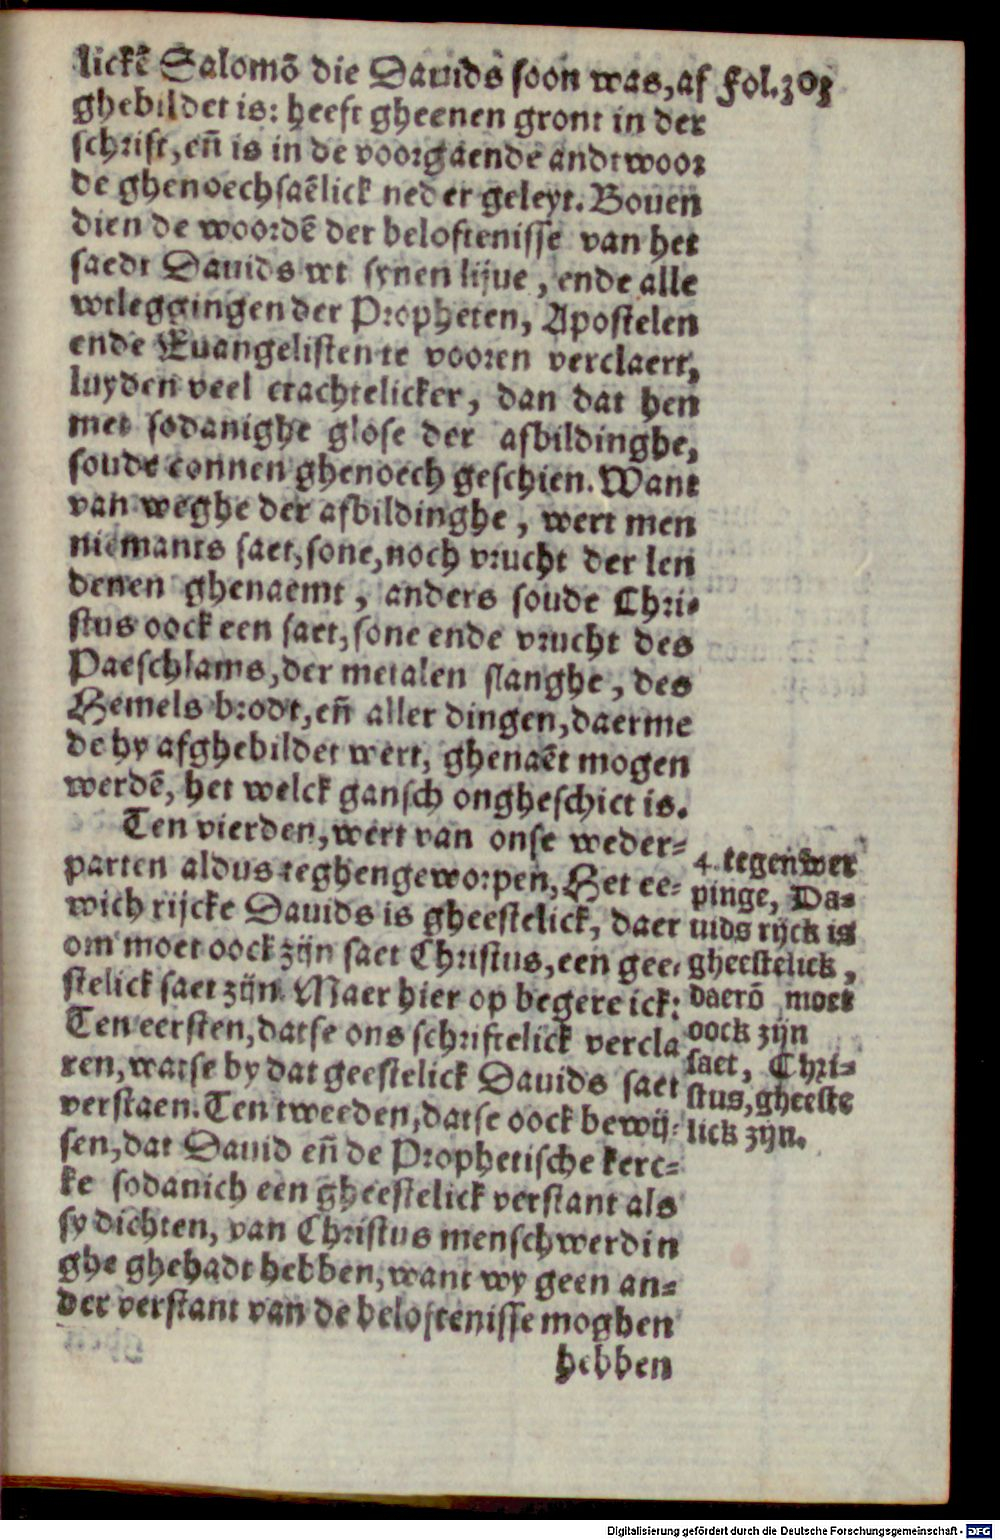 Fol.303
lickē Salomō die Dauids soon was, af
ghebildet is: heeft gheenen gront in der
schrift, eñ is in de voorgaende andtwoor
de ghenoechsaēlick neder geleyt. Bouen
dien de woordē der beloftenisse van het
saedt Dauids wt synen lijue, ende alle
wtleggingen der Propheten, Apostelen
ende Euangelisten te vooren verclaert,
luyden veel crachtelicker, dan dat hen
met sodanighe glose der afbildinghe,
soude connen ghenoech geschien. Want
van weghe der afbildinghe, wert men
niemants saet, sone, noch vrucht der len
denen ghenaemt, anders soude Chri-
stus oock een saet, sone ende vrucht des
Paeschlams, der metalen slanghe, des
Hemels brodt, eñ aller dingen, daerme
de hy afghebildet wert, ghenaēt mogen
werdē, het welck gansch ongheschict is.
Ten vierden, wert van onse weder-
parten aldus teghengeworpen, Het ee-
wich rijcke Dauids is gheestelick, daer
om moet oock zijn saet Christus, een gee-
stelick saet zijn. Maer hier op begere ick:
Ten eersten, datse ons schriftelick vercla
ren, watse by dat geestelick Dauids saet
verstaen. Ten tweeden, datse oock bewij-
sen, dat Dauid eñ de Prophetische kerc-
ke sodanich een gheestelick verstant als
sy dichten, van Christus menschwerdin
ghe ghehadt hebben, want wy geen an-
der verstant van de beloftenisse moghen
hebben
4. tegenwer
pinge, Da-
uids rijck is
gheestelick,
daerō moet
oock zijn
saet, Chri-
stus, gheeste
lick zijn.
Digitalisierung gefördert durch die Deutsche Forschungsgemeinschaft - DFG